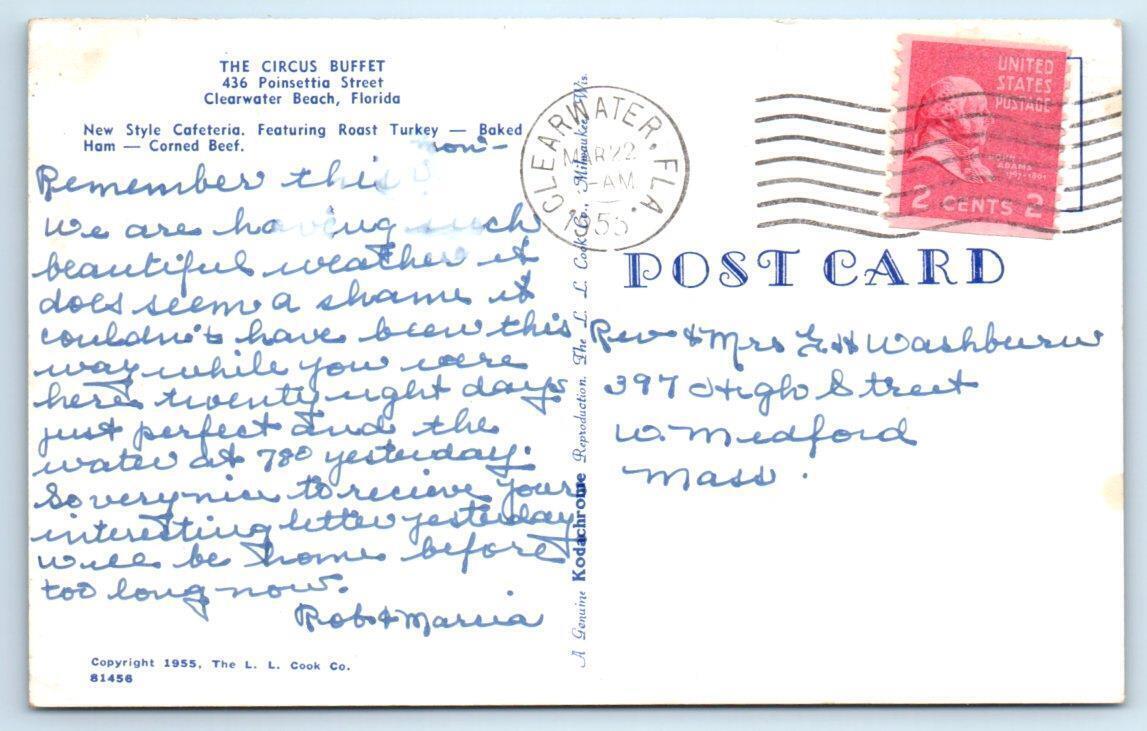 THE CIRCUS BUFFET
436 Poinsettia Street
Clearwater Beach, Florida
New Style Cafeteria. Featuring Roast Turkey — Baked
Ham — Corned Beef.
Remember this
we are having such
beautiful weather it
does seem a shame it
couldn't have been this
way while you were
here twenty eight days
just perfect and the
water at 78° yesterday.
So very nice to recieve your
interesting letter yesterday
will be home before
too long now.
Rob & Marcia
Copyright 1955, The L. L. Cook Co.
81456
A Genuine Kodachrome Reproduction. The L. L. Cook Co., Milwaukee, Wis.
CLEARWATER, FLA.
MAR 22
-AM
1955
UNITED
STATES
POSTAGE
JOHN
ADAMS
1797-1801
2 CENTS 2
POST CARD
Rev & Mrs E H Washburn
397 High Street
W. Medford
Mass.